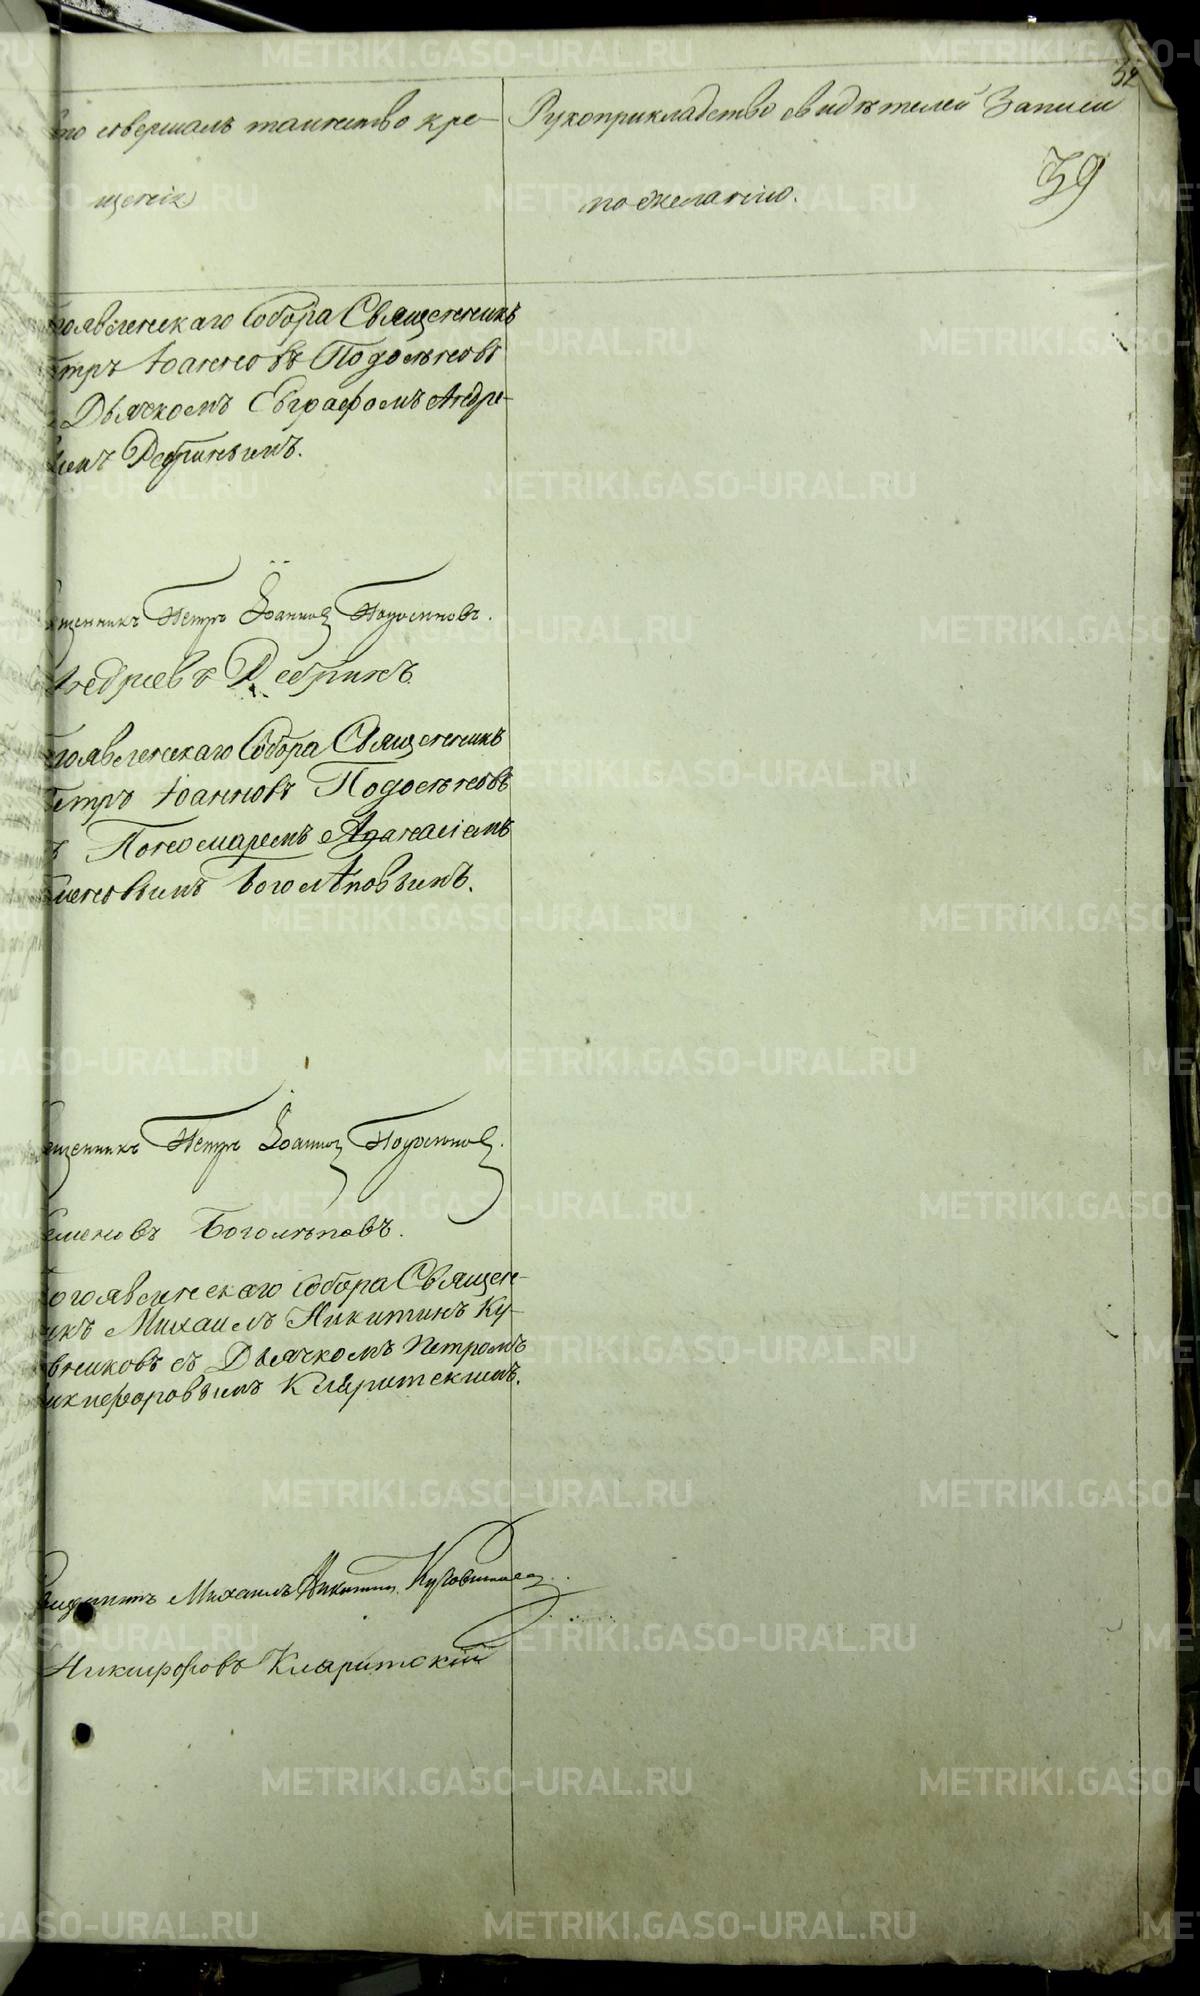 то совершалъ таинство кре-
щенія
Рукоприкладство свидѣтелей Записи
по желанію.
32
39
гоявленскаго Собора Священникъ
етръ Іоанновъ Подосеновъ
Дьячкомъ Евграфомъ Андре-
вымъ Дебринымъ.
щенникъ Петръ Іоанновъ
Андреевъ Дебринъ.
гоявленскаго Собора Священникъ
етръ Іоанновъ
ъ Пономаремъ Аѳанасіемъ
меновымъ Боголѣповымъ.
ященникъ Петръ Іоанновъ
еменовъ Боголѣповъ.
огоявленскаго Собора Священ-
икъ Михаилъ Никитинъ Ку-
вниковъ съ Дьячкомъ Петромъ
икифоровымъ Кларитскимъ.
Михаилъ Никитин
Никифоровъ Кларитскій
METRIKI.GASO-URAL.RU